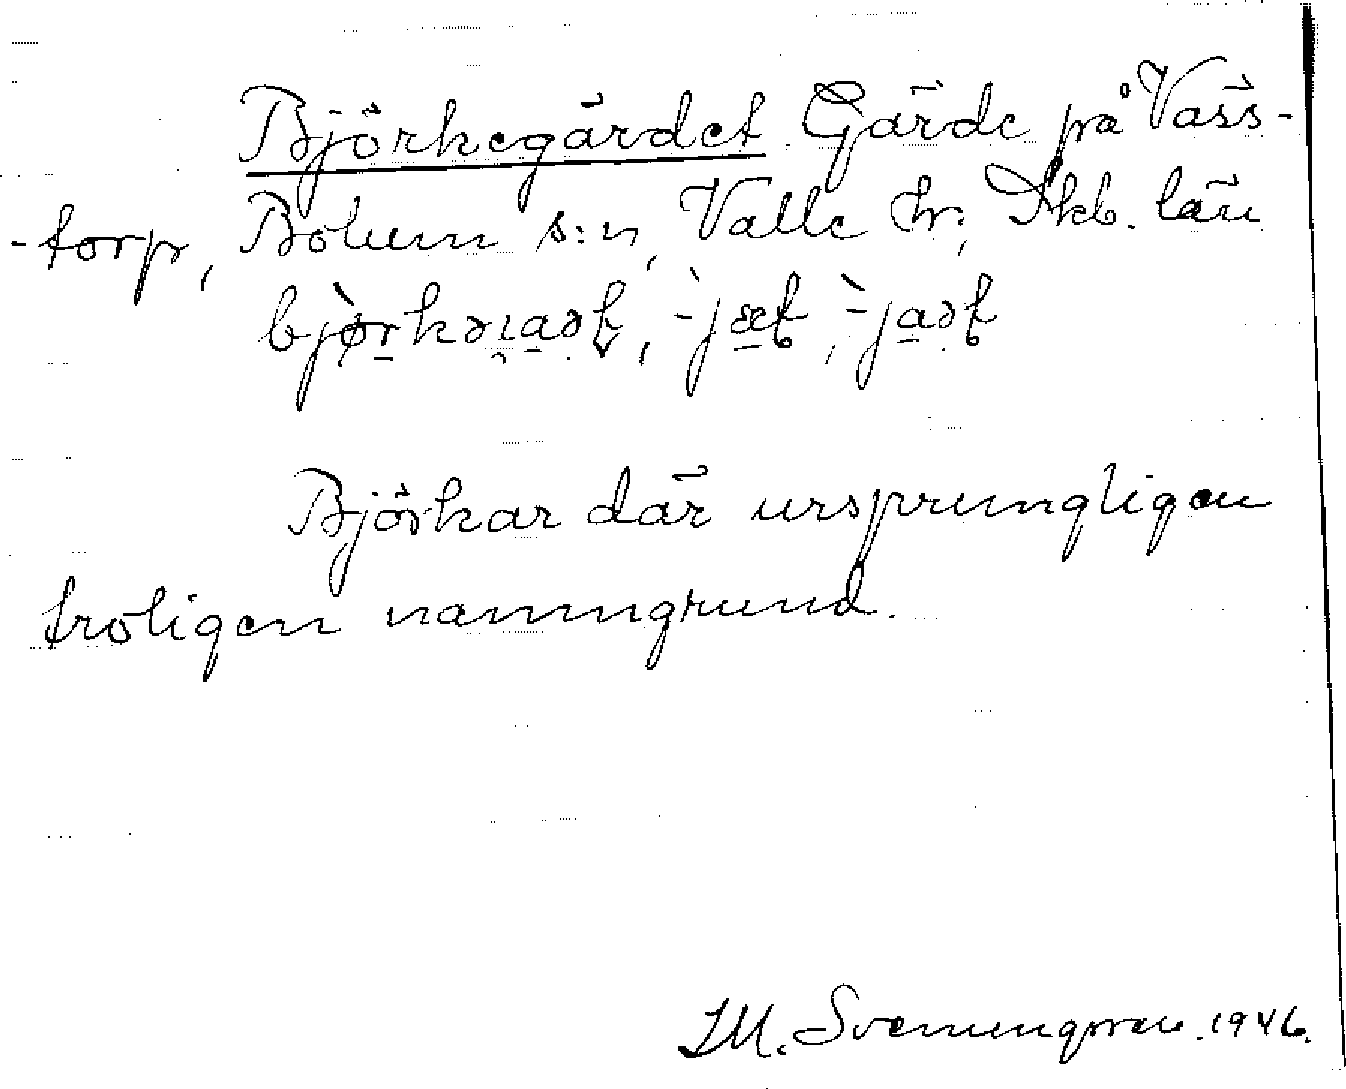 Björkegärdet Gärde på Väss-
-torp, Bolum s:n, Valle hr, Skb. län
Björkar där ursprungligen
troligen namngrund.
I.M. Svennungsson. 1946.